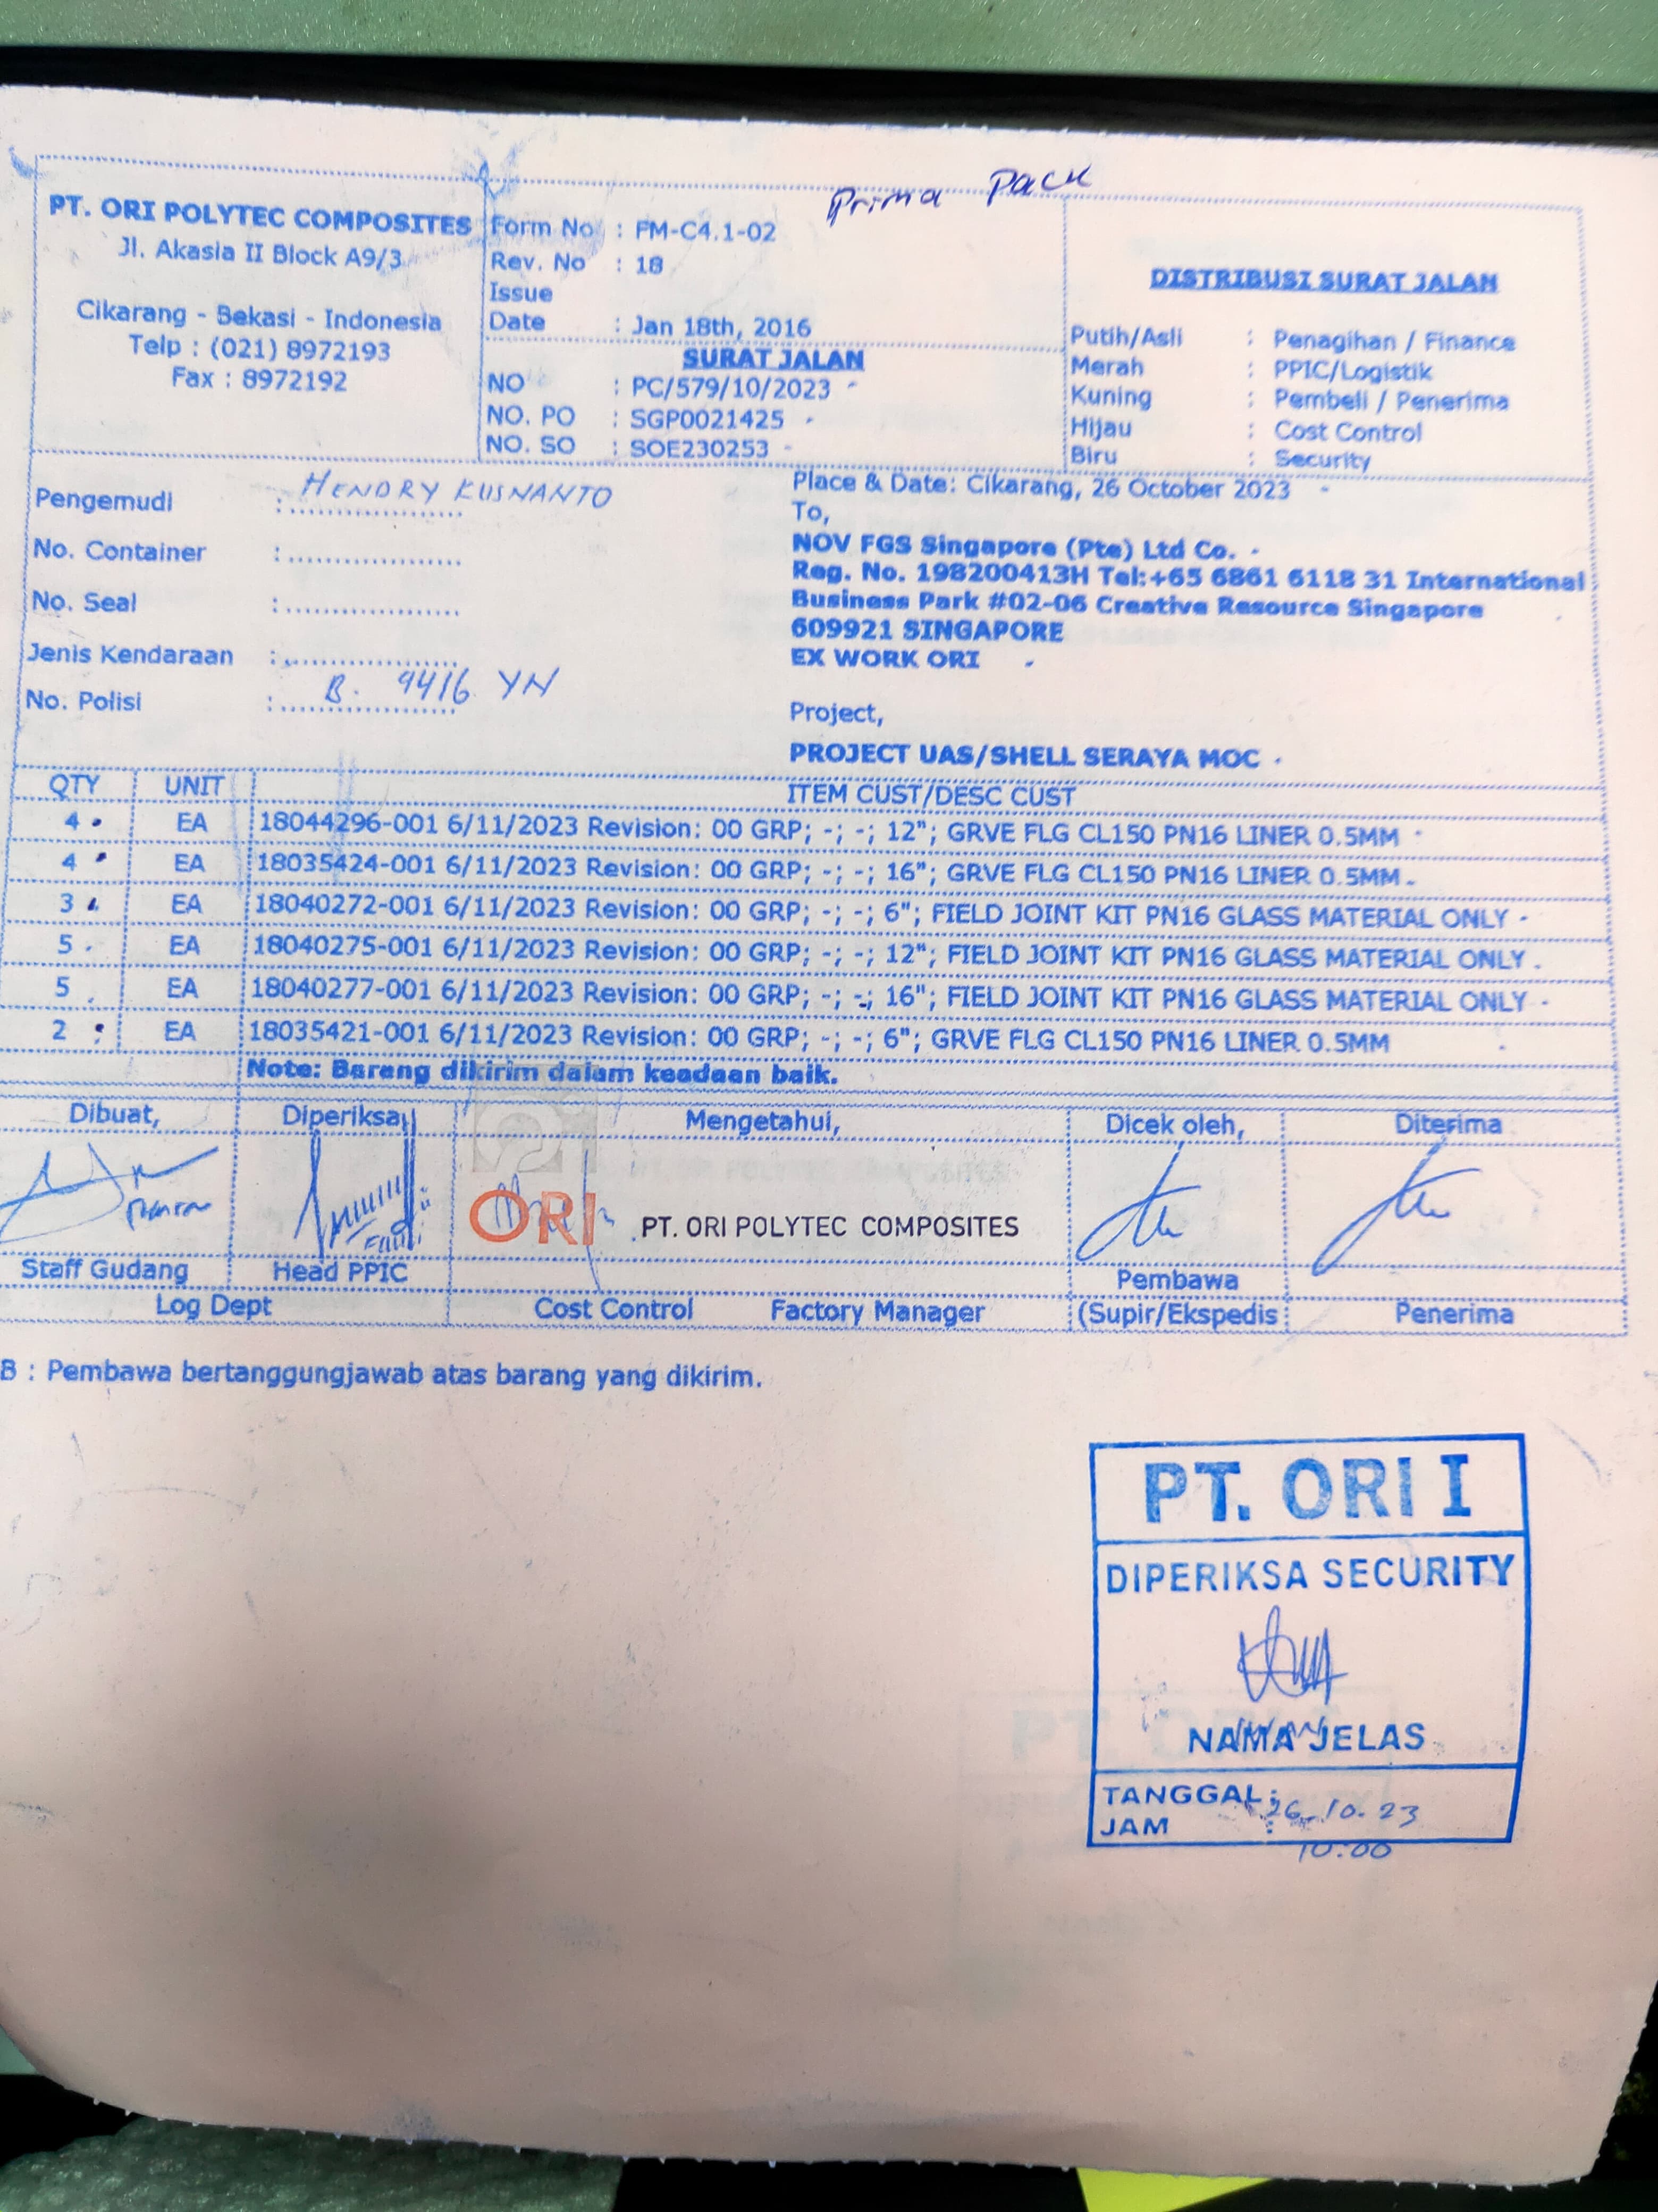 Prima Pack
PT. ORI POLYTEC COMPOSITES
Jl. Akasia II Block A9/3
Cikarang - Bekasi - Indonesia
Telp : (021) 8972193
Fax : 8972192
Form No : FM-C4.1-02
Rev. No : 18
Issue
Date : Jan 18th, 2016
SURAT JALAN
NO : PC/579/10/2023
NO. PO : SGP0021425
NO. SO : SOE230253
DISTRIBUSI SURAT JALAN
Putih/Asli : Penagihan / Finance
Merah : PPIC/Logistik
Kuning : Pembeli / Penerima
Hijau : Cost Control
Biru : Security
Pengemudi : HENDRY KUSNANTO
No. Container :..................
No. Seal :..................
Jenis Kendaraan :..................
No. Polisi : B. 9416 YN
Place & Date: Cikarang, 26 October 2023
To,
NOV FGS Singapore (Pte) Ltd Co.
Reg. No. 198200413H Tel:+65 6861 6118 31 International
Business Park #02-06 Creative Resource Singapore
609921 SINGAPORE
EX WORK ORI
Project,
PROJECT UAS/SHELL SERAYA MOC
QTY UNIT ITEM CUST/DESC CUST
4 EA 18044296-001 6/11/2023 Revision: 00 GRP; -; -; 12"; GRVE FLG CL150 PN16 LINER 0.5MM
4 EA 18035424-001 6/11/2023 Revision: 00 GRP; -; -; 16"; GRVE FLG CL150 PN16 LINER 0.5MM
3 EA 18040272-001 6/11/2023 Revision: 00 GRP; -; -; 6"; FIELD JOINT KIT PN16 GLASS MATERIAL ONLY
5 EA 18040275-001 6/11/2023 Revision: 00 GRP; -; -; 12"; FIELD JOINT KIT PN16 GLASS MATERIAL ONLY
5 EA 18040277-001 6/11/2023 Revision: 00 GRP; -; -; 16"; FIELD JOINT KIT PN16 GLASS MATERIAL ONLY
2 EA 18035421-001 6/11/2023 Revision: 00 GRP; -; -; 6"; GRVE FLG CL150 PN16 LINER 0.5MM
Note: Barang dikirim dalam keadaan baik.
Dibuat, Diperiksa, Mengetahui, Dicek oleh, Diterima
ORI PT. ORI POLYTEC COMPOSITES
Staff Gudang Head PPIC Pembawa
Log Dept Cost Control Factory Manager (Supir/Ekspedis Penerima
B : Pembawa bertanggungjawab atas barang yang dikirim.
PT. ORI I
DIPERIKSA SECURITY
NAMA JELAS
TANGGAL : 26.10.23
JAM : 10:00